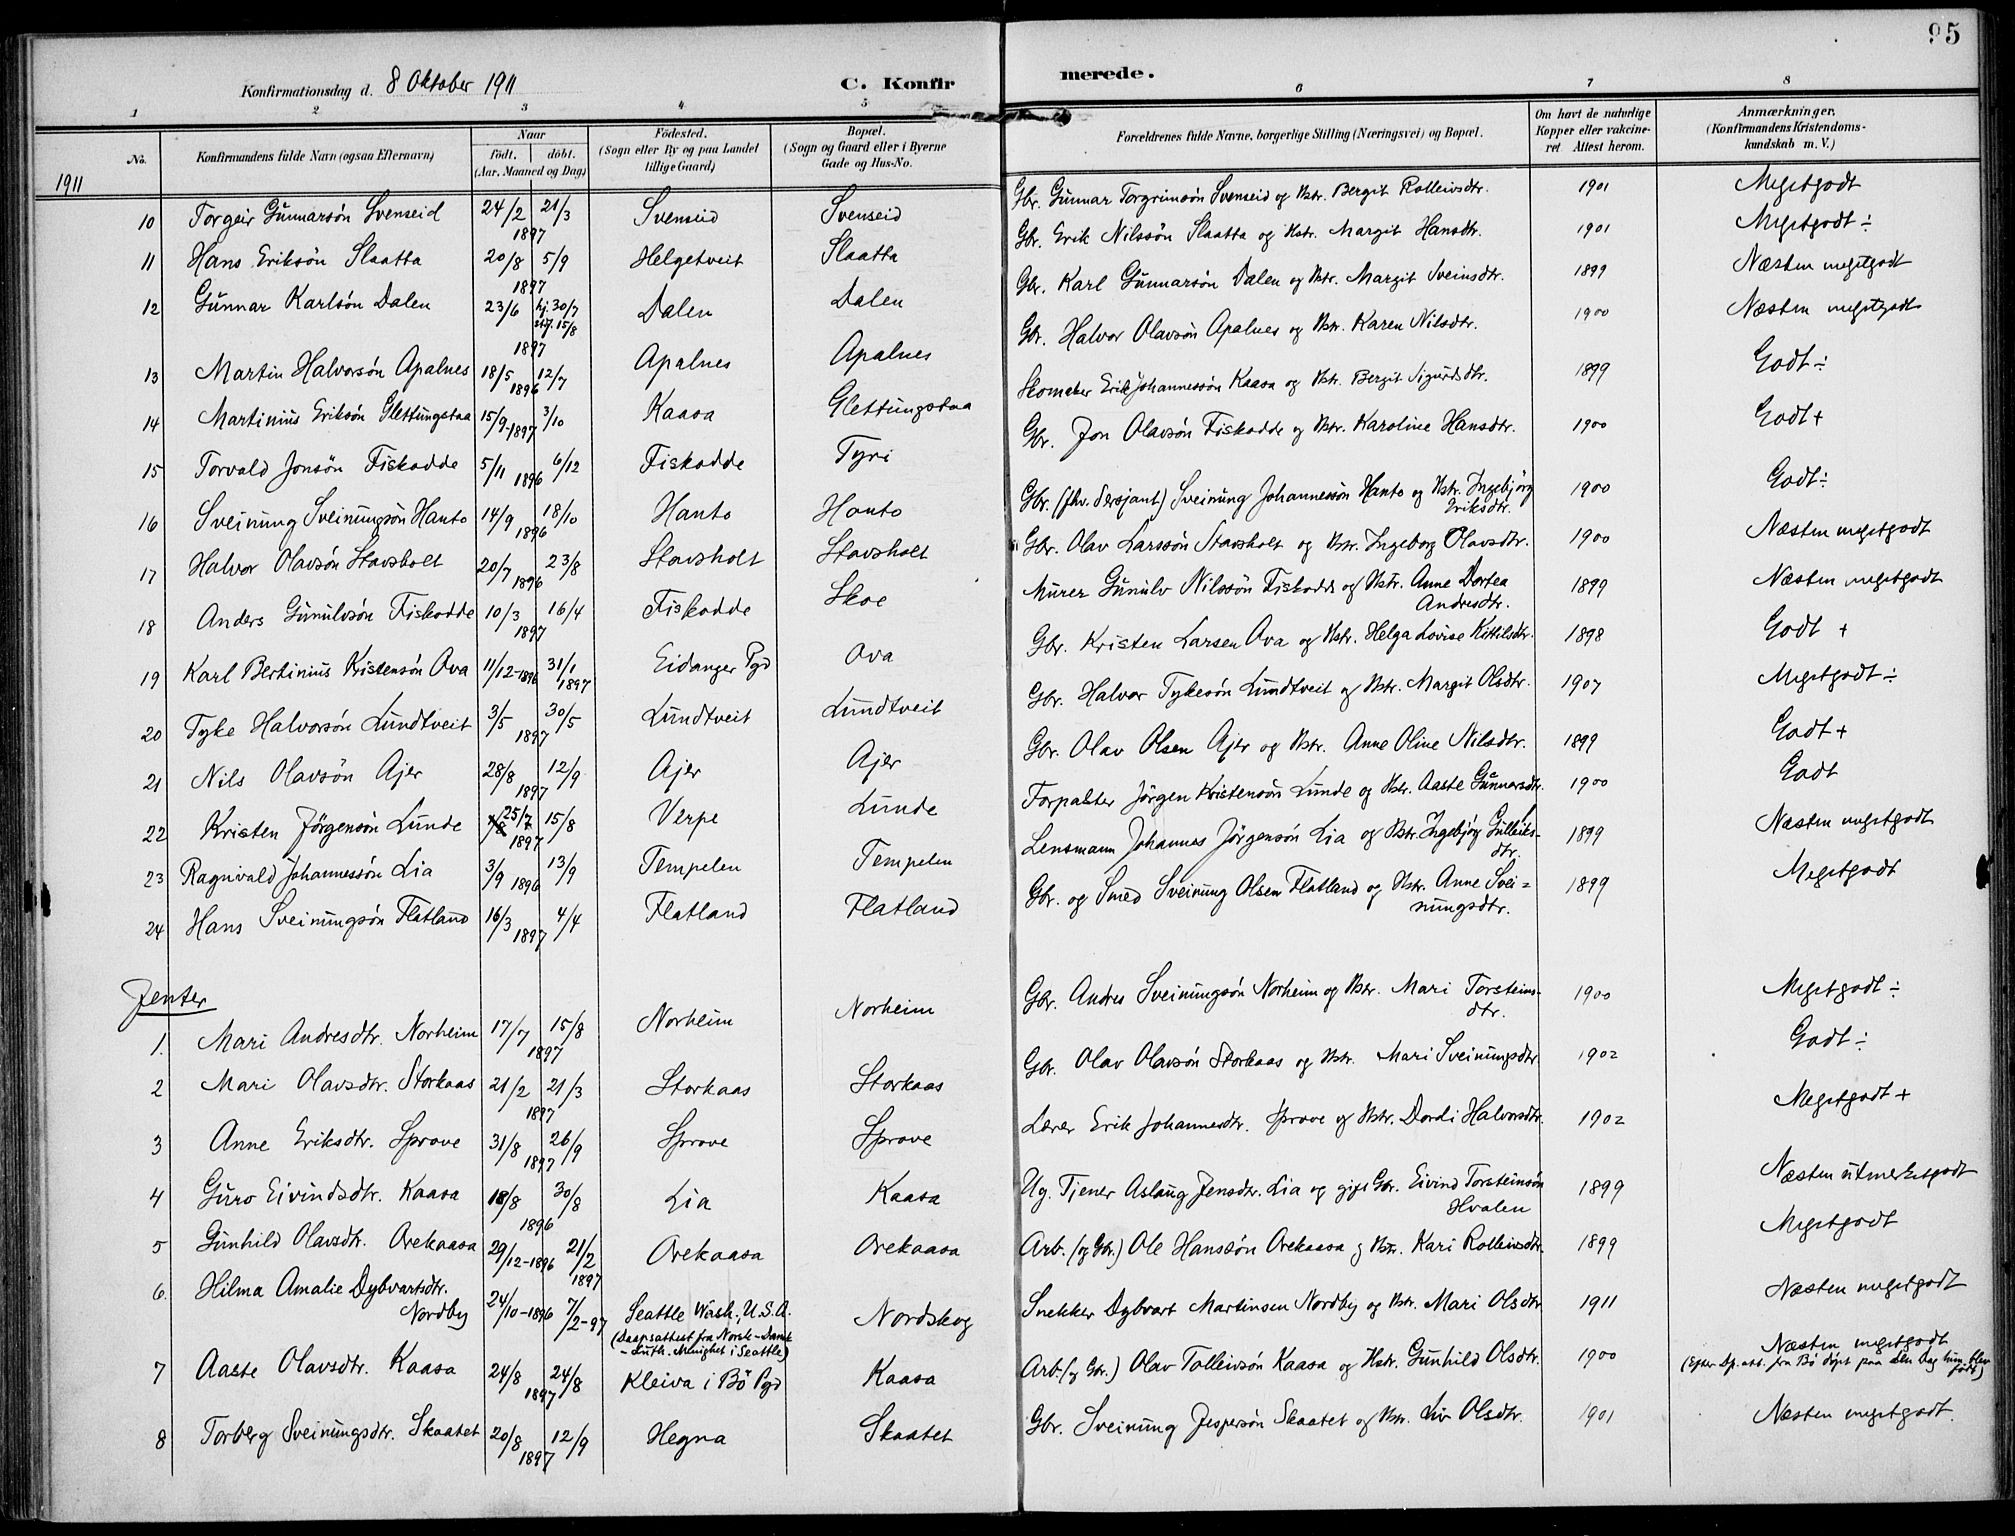 95
Konfirmationsdag d. 8 Oktober 1911
C. Konfirmerede.
1 2 3 4 5 6 7 8
No. Konfirmandens fulde Navn (ogsaa Efternavn) Naar födt. döbt. (Aar, Maaned og Dag) Födested. (Sogn eller By og paa Landet tillige Gaard) Bopæl. (Sogn og Gaard eller i Byerne Gade og Hus-No. Forældrenes fulde Navne, borgerlige Stilling (Næringsvei) og Bopæl. Om havt de naturlige Kopper eller vakcineret Attest herom. Anmærkninger. (Konfirmandens Kristendomskundskab m. V.)
1911
10 Torgeir Gunnarsön Svenseid 24/2 21/3 1897 Svenseid Svenseid Gbr. Gunnar Torgrimsön Svenseid og Hstr. Bergit Rolleivsdtr. 1901 Megetgodt
11 Hans Eriksön Slaatta 20/8 5/9 1897 Helgetveit Slaatta Gbr. Erik Nilssön Slaatta og Hstr. Margit Hansdtr. 1901 Megetgodt ÷
12 Gunnar Karlsön Dalen 23/6 hj. 30/7 stf. 15/8 1897 Dalen Dalen Gbr. Karl Gunnarsön Dalen og Hstr. Margit Sveinsdtr. 1899 Næsten megetgodt
13 Martin Halvorsön Apalnes 18/5 12/7 1896 Apalnes Apalnes Gbr. Halvor Olavsön Apalnes og Hstr. Karen Nilsdtr. 1900 Næsten megetgodt
14 Martinius Eriksön Glettungstaa 15/9-1897 3/10 Kaasa Glettungstaa Skomaker Erik Johannessön Kaasa og Hstr. Bergit Sigurdsdtr. 1899 Godt ÷
15 Torvald Jonsön Fiskodde 5/11 6/12 1896 Fiskodde Tyri Gbr. Jon Olavsön Fiskodde og Hstr. Karoline Hansdtr. 1900 Godt +
16 Sveinung Sveinungsön Hanto 14/9 18/10 1896 Hanto Hanto Gbr. (fhv. Sersjant) Sveinung Johannessön Hanto og Hstr. Ingebjörg Eriksdtr. 1900 Godt ÷
17 Halvor Olavsön Stavsholt 20/7 23/8 1896 Stavsholt Stavsholt Gbr. Olav Larssön Stavsholt og Hstr. Ingeborg Olavsdtr. 1900 Næsten megetgodt
18 Anders Gunulvsön Fiskodde 10/3 16/4 1897 Fiskodde Skoe Murer Gunulv Nilssön Fiskodde og Hstr. Anne Dortea Andresdtr. 1899 Næsten megetgodt
19 Karl Bertinius Kristensön Ova 11/12-1896 31/1 1897 Eidanger Pgd Ova Gbr. Kristen Larsen Ova og Hstr. Helga Lovise Kittilsdtr. 1898 Godt +
20 Tyke Halvorsön Lundtveit 3/5 30/5 1897 Lundtveit Lundtveit Gbr. Halvor Tykesön Lundtveit og Hstr. Margit Olsdtr. 1907 Megetgodt ÷
21 Nils Olavsön Ajer 28/8 12/9 1897 Ajer Ajer Gbr. Olav Olsen Ajer og Hstr. Anne Oline Nilsdtr. 1899 Godt +
22 Kristen Jörgensön Lunde 25/7 15/8 1897 Verpe Lunde Forpakter Jörgen Kristensön Lunde og Hstr. Aaste Gunnarsdtr. 1900 Godt
23 Ragnvald Johannessön Lia 3/9 13/9 1896 Tempelen Tempelen Lensmann Johannes Jörgensön Lia og Hstr. Ingebjörg Gulleiksdtr. 1899 Næsten megetgodt
24 Hans Sveinungsön Flatland 16/3 4/4 1897 Flatland Flatland Gbr. og Smed Sveinung Olsen Flatland og Hstr. Anne Sveinungsdtr. 1899 Megetgodt
Jenter
1. Mari Andresdtr. Norheim 17/7 15/8 1897 Norheim Norheim Gbr. Andres Sveinungsön Norheim og Hstr. Mari Torsteinsdtr. 1900 Megetgodt ÷
2 Mari Olavsdtr. Storkaas 21/2 21/3 1897 Storkaas Storkaas Gbr. Olav Olavsön Storkaas og Hstr. Mari Sveinungsdtr. 1902 Godt ÷
3 Anne Eriksdtr. Sprove 31/8 26/9 1897 Sprove Sprove Lærer Erik Johannesdtr. Sprove og Hstr. Dordi Halvorsdtr. 1902 Megetgodt +
4 Guro Eivindsdtr. Kaasa 18/8 30/8 1896 Lia Kaasa Ug. Tjener Aslaug Jensdtr. Lia og gift Gbr. Eivind Torsteinsön Hvalen 1899 Næsten utmerketgodt
5 Gunhild Olavsdtr. Orekaasa 29/12-1896 21/2 1897 Orekaasa Orekaasa Arb. (og Gbr.) Ole Hanssön Orekaasa og Hstr. Kari Rolleivsdtr. 1899 Megetgodt
6. Hilma Amalie Dybvartsdtr. Nordby 24/10-1896 7/2-97 Seattle Wash., U.S.A. (Daapsattest fra Norsk-Dansk-Luth. Menighet i Seattle) Nordskog Snekker Dybvart Martinsen Nordby og Hstr. Mari Olsdtr. 1911 Næsten megetgodt
7 Aaste Olavsdtr. Kaasa 24/8 24/8 1897 Kleiva i Bö Pgd Kaasa Arb. (og Gbr.) Olav Tolleivsön Kaasa og Hstr. Gunhild Olsdtr. 1900 Næsten megetgodt (Efter Dp. att. fra Bö döpt paa den Dag hun blev födt)
8 Torberg Sveinungsdtr. Skaatet 20/8 12/9 1897 Hegna Skaatet Gbr. Sveinung Jespersön Skaatet og Hstr. Liv Olsdtr. 1901 Næsten megetgodt.